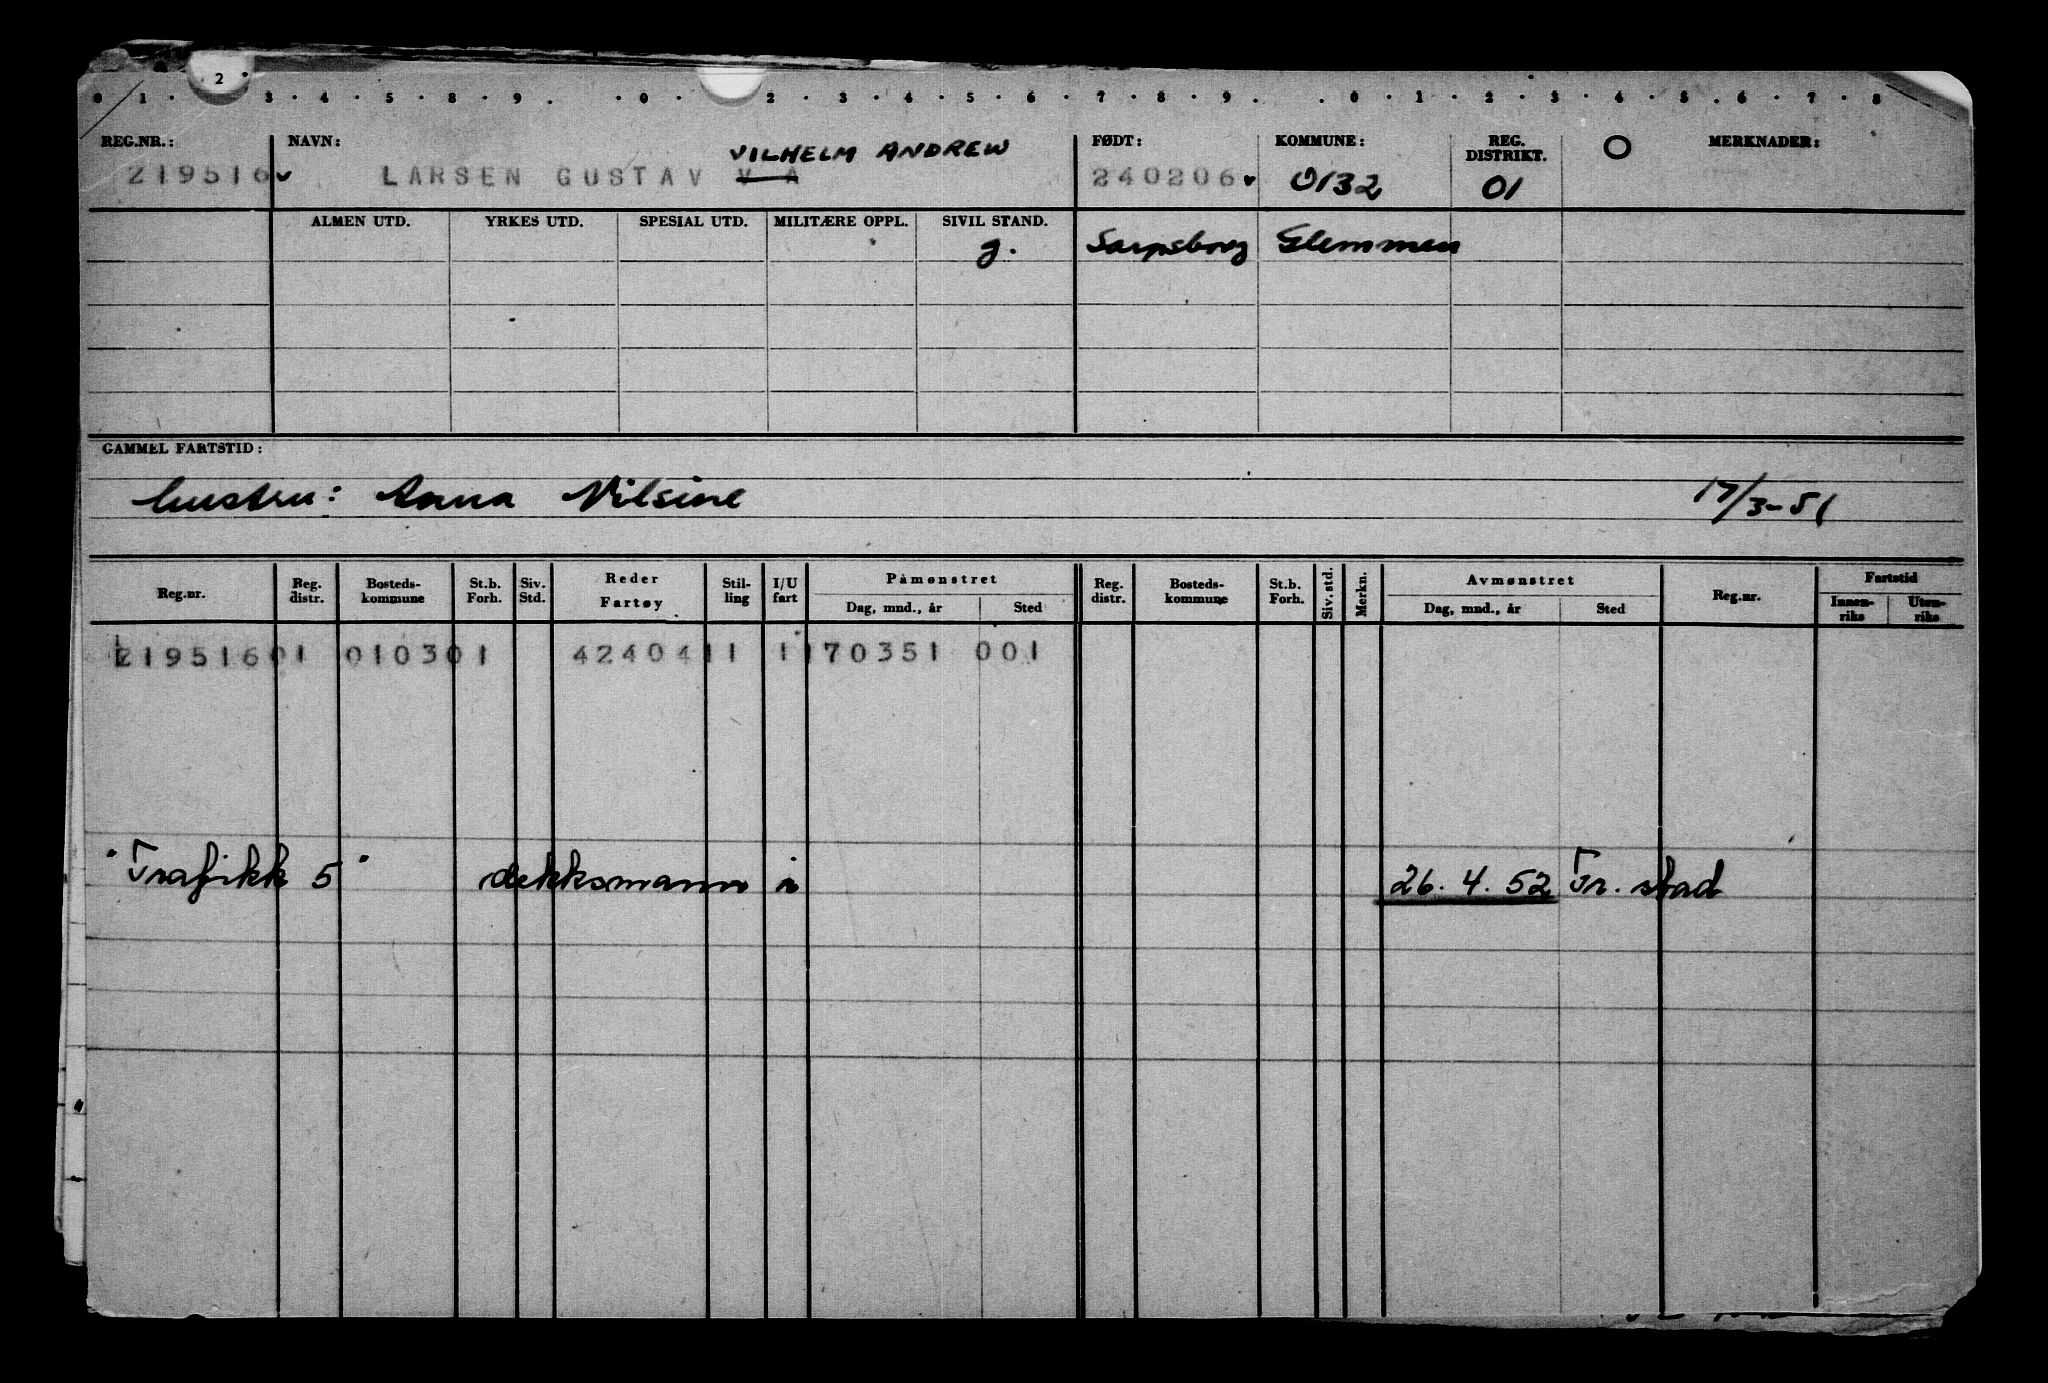 0 1 · 2 · 3 · 4 · 5 · 8 · 9 . · 0 · 2 · 3 · 4 · 5 · 6 · 7 · 8 · 9 . . 0 · 1 · 2 · 3 · 4 · 5 . 6 · 7 · 8
REG.NR.: NAVN: FØDT: KOMMUNE: REG. DISTRIKT. O MERKNADER:
VILHELM ANDREW
219516 LARSEN GUSTAV V A 240206 0132 01
ALMEN UTD. YRKES UTD. SPESIAL UTD. MILITÆRE OPPL. SIVIL STAND.
g. Sarpsborg Glemmen
GAMMEL FARTSTID:
hustru: Anna Nilsine 17/3-51
Reg.nr. Reg. distr. Bosteds- kommune St.b. Forh. Siv. Std. Reder Fartøy Stil- ling I/U fart Påmønstret Reg. distr. Bosteds- kommune St.b. Forh. Siv. std. Merkn. Avmønstret Reg.nr. Fartstid
Dag, mnd., år Sted Dag, mnd., år Sted Innen- riks Uten- riks
219516 01 0103 01 42404 11 1 170351 001
"Trafikk 5" dekksmann i 26. 4. 52 Fr. stad